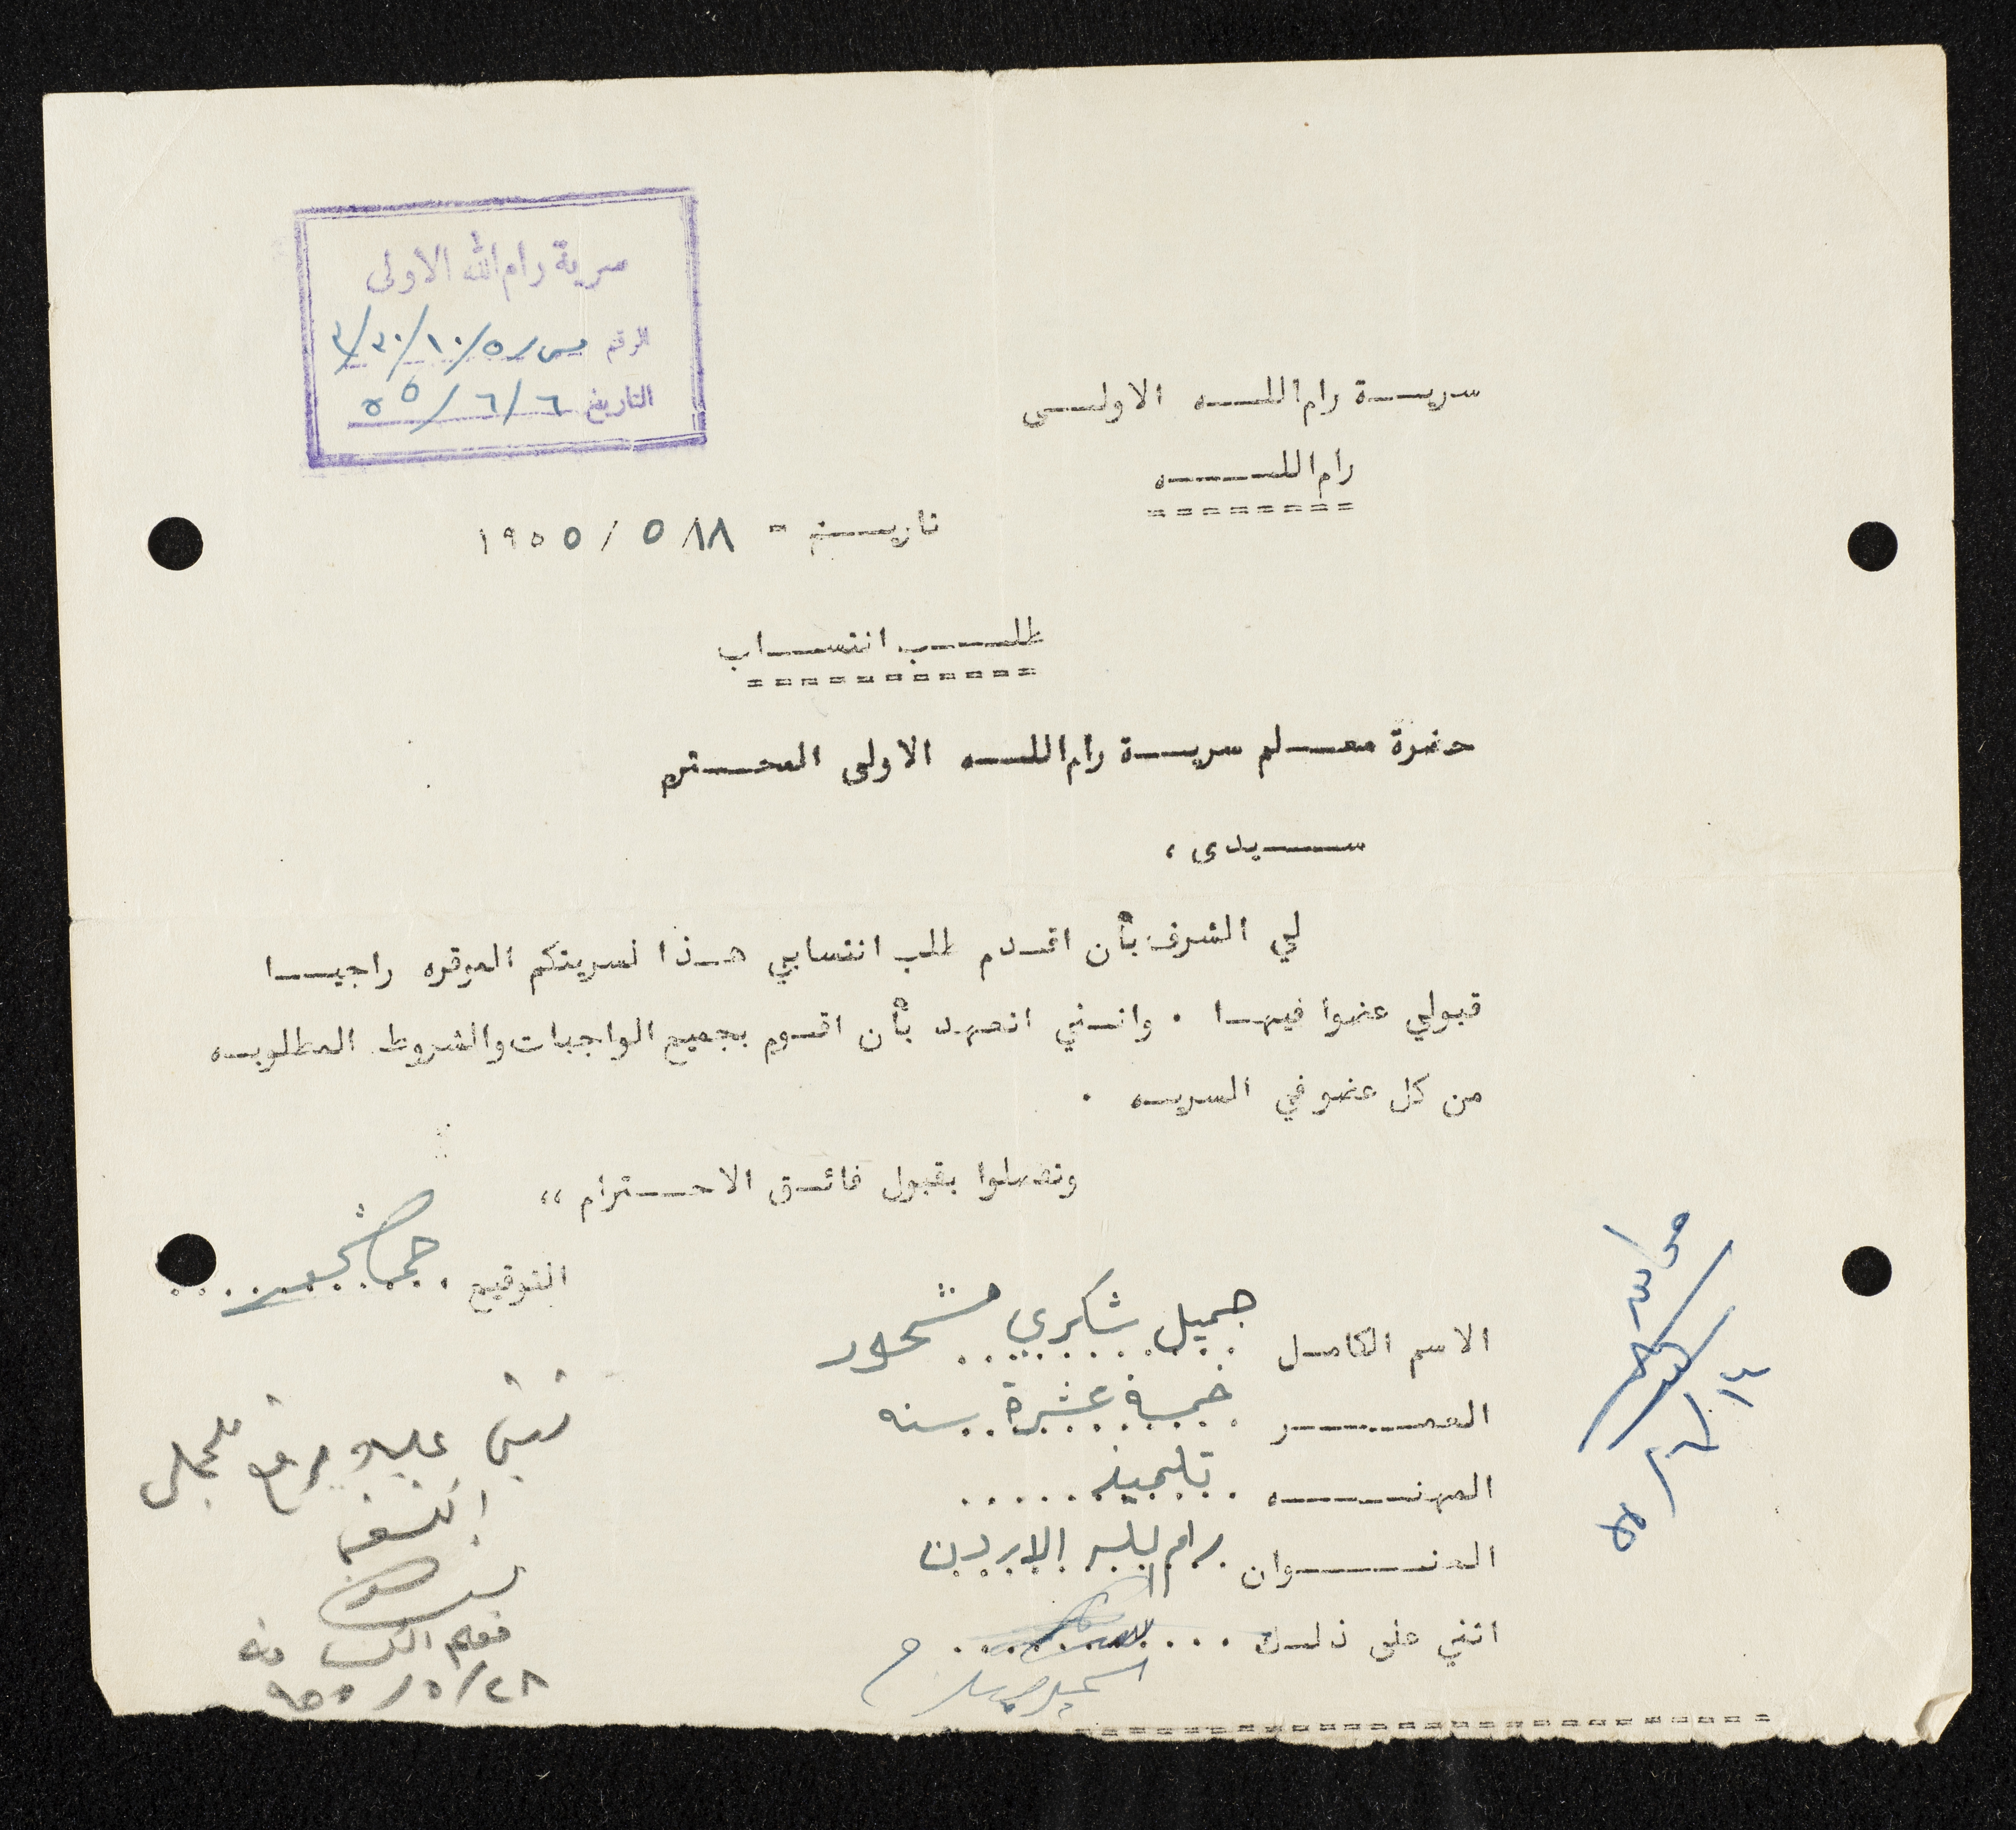 سرية رام الله الاولى
الرقم س/٥/١٠/٣٠/٣
التاريخ ٦/٦/٥٥
سريـــة رام اللــه الاولــى
رام اللـــه
تاريــخ - ١٨/ ٥ / ١٩٥٥
طلـــب انتســاب
حضرة معــلم سريــة رام اللــه الاولى المحــترم
ســـيدى ،
لي الشرف بأن اقـدم طلب انتسابي هـذا لسريتكم الموقره راجيــا
قبولي عضوا فيهـا . وانـني اتعهد بأن اقـوم بجميع الواجبات والشروط المطلوبــه
من كل عضو في السريــه .
وتفضلوا بقبول فائـق الاحــترام ،،
التوقيع
الاسم الكامـل جميل شكري مشحور
العمــــر خمسة عشرة سنه
المهنــــه تلميذ
العنـــوان رام الله الاردن
اثني على ذلـك
١٤/٦/٥٥
اثني عليه
٢٨/٥/٩٥٥